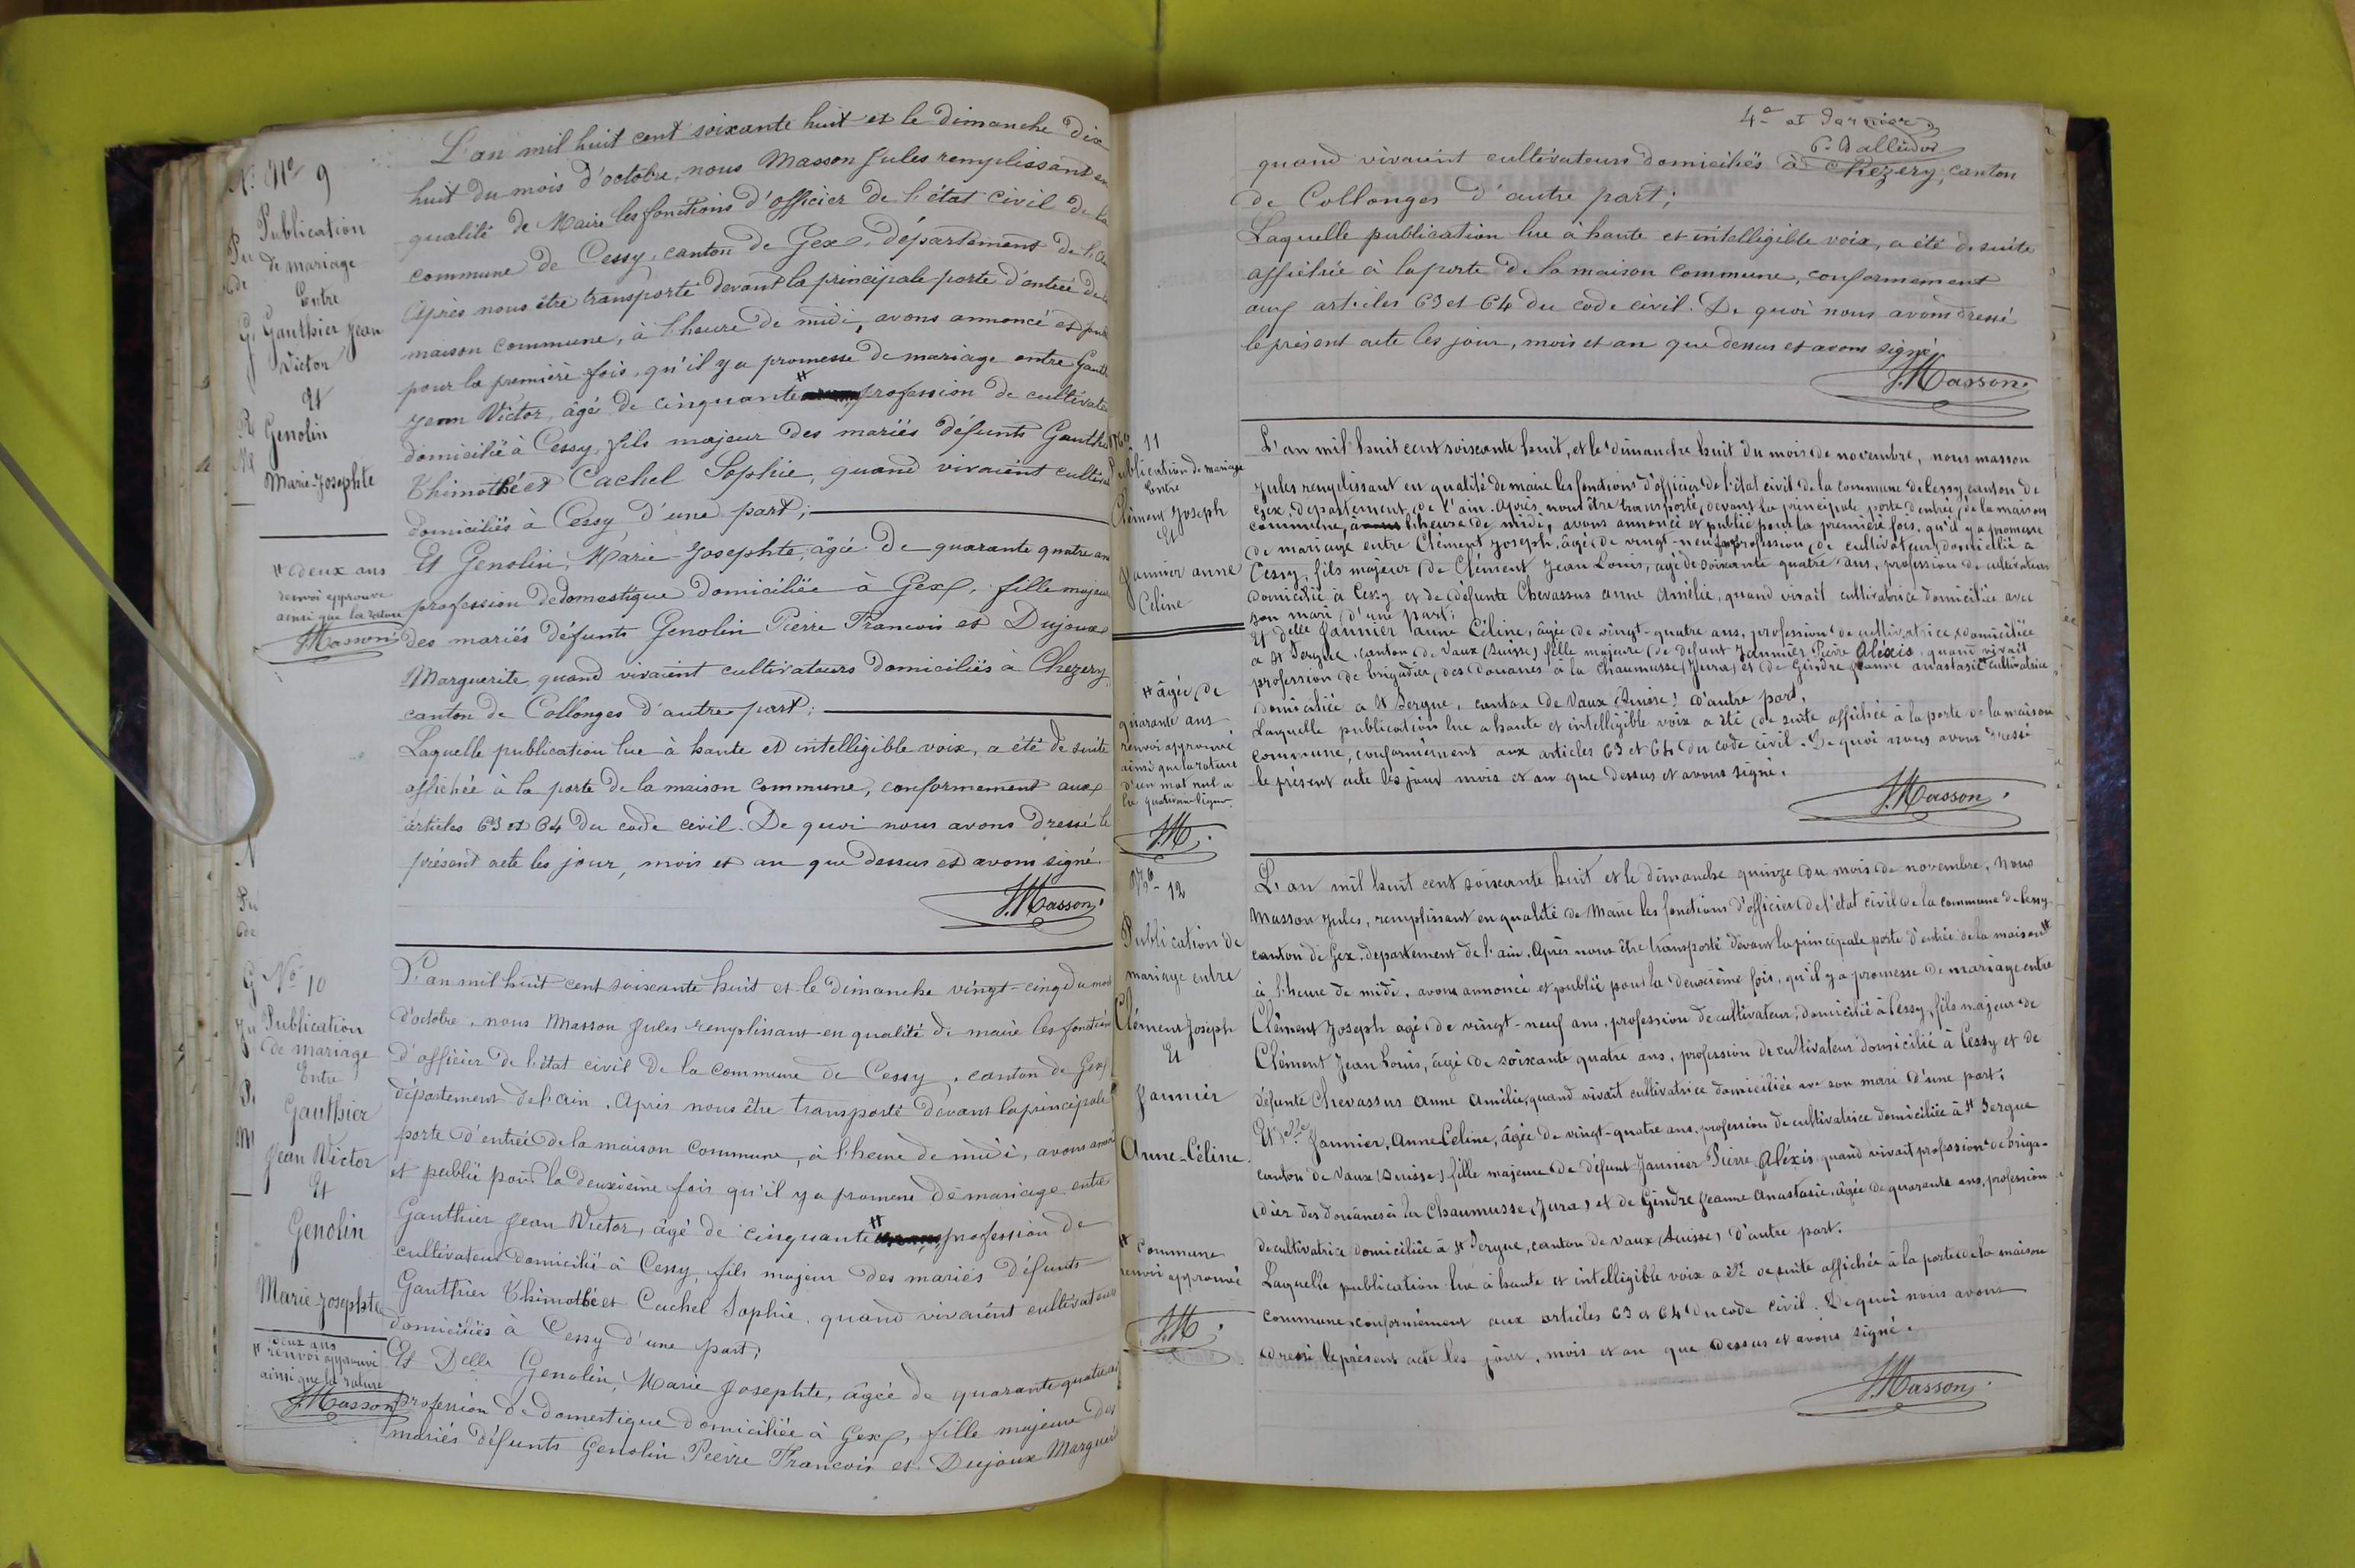 Nº 9
Publication
de mariage
Entre
Gauthier Jean
Victor
Et
Genolin
Marie-Josephte
# deux ans
renvoi approuvé
ainsi que la rature
J. Masson
L'an mil huit cent soixante huit et le dimanche dix
huit du mois d'octobre, nous Masson Jules remplissant en
qualité de Maire les fonctions d'officier de l'état civil de la
commune de Cessy, canton de Gex, département de l'Ain
Après nous être transporté devant la principale porte d'entrée de la
maison commune, à l'heure de midi, avons annoncé et
pour la première fois, qu'il y a promesse de mariage entre
Jean Victor, âgé de cinquante # profession de
domicilié à Cessy, fils majeur des mariés défunts
Thimothé et Cachel Sophie, quand vivaient
domiciliés à Cessy d'une part;
Et Genolin, Marie-Josephte, âgée de quarante quatre ans
profession de domestique domiciliée à Gex, fille majeure
des mariés défunts Genolin Pierre Francois et Dujoux
Marguerite quand vivaient cultivateurs domiciliés à Chezery
canton de Collonges d'autre part;
Laquelle publication lue à haute et intelligible voix, a été de suite
affichée à la porte de la maison commune, conformement aux
articles 63 et 64 du code civil. De quoi nous avons dressé le
présent acte les jour, mois et an que dessus et avons signé.
J. Masson
Nº 10
Publication
de mariage
Entre
Gauthier
Jean Victor
Et
Genolin
Marie-Josephte
# deux ans
renvoi approuvé
ainsi que la rature
J. Masson
L'an mil huit cent soixante huit et le dimanche vingt-cinq du mois
d'octobre, nous Masson Jules remplissant en qualité de maire les fonctions
d'officier de l'état civil de la commune de Cessy, canton de Gex
département de l'ain. Après nous être transporté devant la principale
porte d'entrée de la maison commune, à l'heure de midi, avons
et publié pour la deuxième fois qu'il y a promesse de mariage entre
Gauthier Jean Victor, âgé de cinquante # profession de
cultivateur domicilié à Cessy, fils majeur des mariés défunts
Gauthier Thimothé et Cachel Sophie, quand vivaient cultivateurs
domiciliés à Cessy d'une part;
Et Delle Genolin, Marie Josephte, âgée de quarante quatre ans
profession de domestique domiciliée à Gex, fille majeure des
mariés défunts Genolin Pierre Francois et Dujoux Marguerite
4e et dernier
quand vivaient cultivateurs domiciliés à Chézery, canton
de Collonges d'autre part;
Laquelle publication lue à haute et intelligible voix, a été de suite
affichée à la porte de la maison commune, conformement
aux articles 63 et 64 du code civil. De quoi nous avons dressé
le présent acte les jour, mois et an que dessus et avons signé
J. Masson
11
Publication de mariage
Entre
Clément Joseph
Et
Jannier anne
Céline
# âgée de
quarante ans
renvoi approuvé
ainsi que la rature
d'un mot nul a
la quatrième ligne
J.M.
L'an mil huit cent soixante huit, et le dimanche huit du mois de novembre, nous masson
Jules remplissant en qualité de maire les fonctions d'officier de l'état civil de la commune de Cessy, canton de
Gex, département de l'ain. Après nous être transporté, devant la principale porte d'entrée de la maison
commune, à l'heure de midi, avons annoncé et publié pour la première fois, qu'il y a promesse
de mariage entre Clément Joseph, âgé de vingt-neuf ans profession de cultivateur, domicilié à
Cessy, fils majeur de Clément Jean Louis, âgé de soixante quatre ans, profession de cultivateur
domicilié à Cessy et de défunte Chevassus anne Amélie, quand vivait cultivatrice domiciliée avec
son mari d'une part;
Et Delle Jannier anne Céline, âgée de vingt-quatre ans, profession de cultivatrice domiciliée
a St Sergue, canton de Vaux (Suisse) fille majeure de défunt Jannier Pierre Aléxis, quand vivait
profession de brigadier des douanes à la Chaumusse (Jura) et de Gindre Jeanne anastasie # cultivatrice
domiciliée a St Sergue, canton de Vaux (Suisse) d'autre part.
Laquelle publication lue a haute et intelligible voix a été de suite affichée à la porte de la maison
commune, conformément aux articles 63 et 64 du code civil. De quoi nous avons dressé
le présent acte les jour mois et an que dessus et avons signé.
J. Masson
Nº 12
Publication de
mariage entre
Clément Joseph
Et
Jannier
Anne-Céline
# Commune
renvoi approuvé
J.M.
L'an mil huit cent soixante huit et le dimanche quinze du mois de novembre, Nous
Masson Jules, remplissant en qualité de Maire les fonctions d'officier de l'état civil de la commune de Cessy
canton de Gex, departement de l'ain. Après nous être transporté devant la principale porte d'entrée de la maison #
à l'heure de midi, avons annoncé et publié pour la deuxième fois, qu'il y a promesse de mariage entre
Clément Joseph agé de vingt-neuf ans, profession de cultivateur, domicilié à Cessy, fils majeur de
Clément Jean Louis, âgé de soixante quatre ans, profession de cultivateur domicilié à Cessy et de
défunte Chevassus anne amélie, quand vivait cultivatrice domiciliée avec son mari d'une part;
Et Delle Jannier, Anne Celine, âgée de vingt-quatre ans, profession de cultivatrice domiciliée à St Sergue
canton de Vaux (Suisse) fille majeure de défunt Jannier Pierre Aléxis quand vivait profession de briga-
dier des douanes à la Chaumusse (Jura) et de Gindre Jeanne Anastasie, âgée de quarante ans, profession
de cultivatrice domiciliée à St Sergue, canton de Vaux (Suisse) d'autre part.
Laquelle publication lue à haute et intelligible voix a été de suite affichée à la porte de la maison
commune, conformément aux articles 63 et 64 du code civil. De quoi nous avons
dressé le présent acte les jour, mois et an que dessus et avons signé.
J. Masson